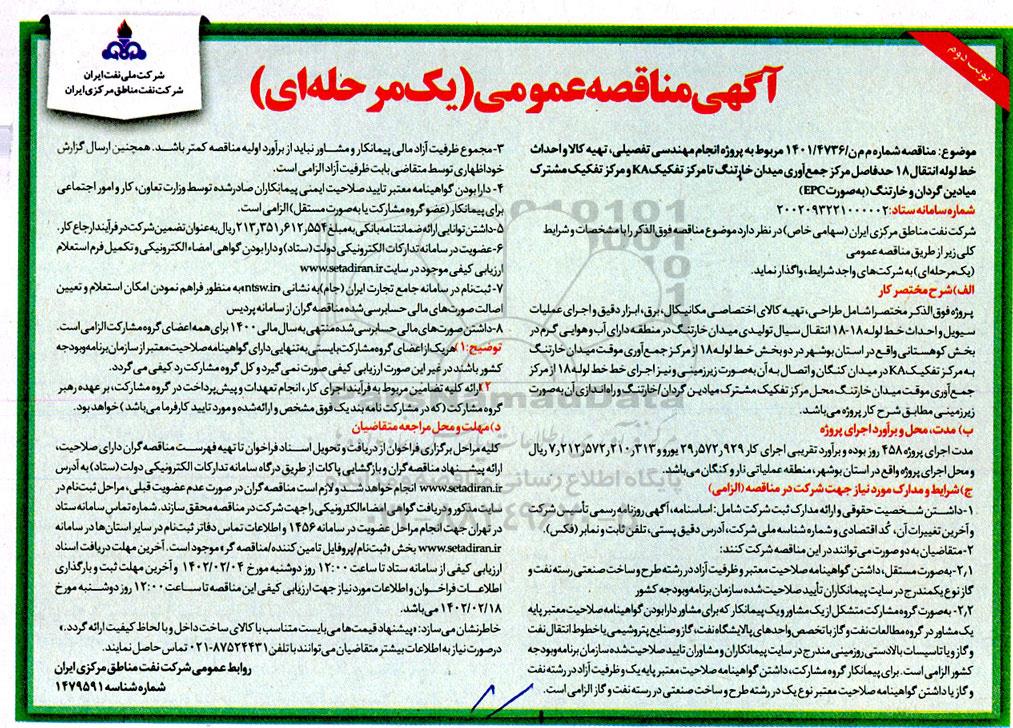 شرکت ملی نفت ایران
شرکت نفت مناطق مرکزی ایران
نوبت دوم
آگهی مناقصه عمومی (یک مرحله‌ای)
موضوع: مناقصه شماره م م ن/۱۴۰۱/۴۷۳۶ مربوط به پروژه انجام مهندسی تفصیلی، تهیه کالا و احداث
خط لوله انتقال ۱۸ حدفاصل مرکز جمع‌آوری میدان خارتنگ تا مرکز تفکیک KA و مرکز تفکیک مشترک
میادین گردان و خارتنگ (به‌صورت EPC)
شماره سامانه ستاد: ۲۰۰۲۰۹۳۲۲۱۰۰۰۰۰۲
شرکت نفت مناطق مرکزی ایران (سهامی خاص) در نظر دارد موضوع مناقصه فوق الذکر را با مشخصات و شرایط
کلی زیر از طریق مناقصه عمومی
(یک مرحله‌ای) به شرکت‌های واجد شرایط، واگذار نماید.
الف) شرح مختصر کار
پروژه فوق الذکر مختصرا شامل طراحی، تهیه کالای اختصاصی مکانیکال، برق، ابزار دقیق و اجرای عملیات
سیویل و احداث خط لوله ۱۸-۱۸ انتقال سیال تولیدی میدان خارتنگ در منطقه دارای آب و هوایی گرم در
بخش کوهستانی واقع در استان بوشهر در دو بخش خط لوله ۱۸ از مرکز جمع‌آوری موقت میدان خارتنگ
به مرکز تفکیک KA در میدان کنگان و اتصال به آن به‌صورت زیرزمینی و نیز اجرای خط خط لوله ۱۸ از مرکز
جمع‌آوری موقت میدان خارتنگ محل مرکز تفکیک مشترک میادین گردان/خارتنگ و راه‌اندازی آن به‌صورت
زیرزمینی مطابق شرح کار پروژه می‌باشد.
ب) مدت، محل و برآورد اجرای پروژه
مدت اجرای پروژه ۴۵۸ روز بوده و برآورد تقریبی اجرای کار ۲۹٫۵۷۲٫۹۲۹ یورو و ۷٫۲۱۲٫۵۷۲٫۲۱۰٫۳۱۳ ریال
و محل اجرای پروژه واقع در استان بوشهر، منطقه عملیاتی نار و کنگان می‌باشد.
ج) شرایط و مدارک مورد نیاز جهت شرکت در مناقصه (الزامی)
۱- داشتن شخصیت حقوقی و ارائه مدارک ثبت شرکت شامل: اساسنامه، آگهی روزنامه رسمی تأسیس شرکت
و آخرین تغییرات آن، کُد اقتصادی و شماره شناسه ملی شرکت، آدرس دقیق پستی، تلفن ثابت و نمابر (فکس).
۲- متقاضیان به دو صورت می‌توانند در این مناقصه شرکت کنند:
۲٫۱- به‌صورت مستقل، داشتن گواهینامه صلاحیت معتبر و ظرفیت آزاد در رشته طرح و ساخت صنعتی رسته نفت و
گاز نوع یک مندرج در سایت پیمانکاران تأیید صلاحیت شده سازمان برنامه و بودجه کشور
۲٫۲- به‌صورت گروه مشارکت متشکل از یک مشاور و یک پیمانکار که برای مشاور دارا بودن گواهینامه صلاحیت معتبر پایه
یک مشاور در گروه مطالعات نفت و گاز با تخصص واحدهای پالایشگاه نفت، گاز و صنایع پتروشیمی یا خطوط انتقال نفت
و گاز و یا تاسیسات بالادستی روزمینی مندرج در سایت پیمانکاران و مشاوران تایید صلاحیت شده سازمان برنامه و بودجه
کشور الزامی است. برای پیمانکار گروه مشارکت، داشتن گواهینامه صلاحیت معتبر پایه یک و ظرفیت آزاد در رشته نفت
و گاز یا داشتن گواهینامه صلاحیت معتبر نوع یک در رشته طرح و ساخت صنعتی در رسته نفت و گاز الزامی است.
۳- مجموع ظرفیت آزاد مالی پیمانکار و مشاور نباید از برآورد اولیه مناقصه کمتر باشد. همچنین ارسال گزارش
خوداظهاری توسط متقاضی بابت ظرفیت آزاد الزامی است.
۴- دارا بودن گواهینامه معتبر تایید صلاحیت ایمنی پیمانکاران صادرشده توسط وزارت تعاون، کار و امور اجتماعی
برای پیمانکار (عضو گروه مشارکت یا به‌صورت مستقل) الزامی است.
۵- داشتن توانایی ارائه ضمانتنامه بانکی به مبلغ ۲۱۳٫۳۵۱٫۶۱۲٫۵۵۴ ریال به عنوان تضمین شرکت در فرآیند ارجاع کار.
۶- عضویت در سامانه تدارکات الکترونیکی دولت (ستاد) و دارا بودن گواهی امضاء الکترونیکی و تکمیل فرم استعلام
ارزیابی کیفی موجود در سایت www.setadiran.ir
۷- ثبت‌نام در سامانه جامع تجارت ایران (جام) به نشانی «ntsw.ir» به منظور فراهم نمودن امکان استعلام و تعیین
اصالت صورت‌های مالی حسابرسی شده مناقصه گران از سامانه پردیس
۸- داشتن صورت‌های مالی حسابرسی شده منتهی به سال مالی ۱۴۰۰ برای همه اعضای گروه مشارکت الزامی است.
توضیح: ۱) هر یک از اعضای گروه مشارکت بایستی به تنهایی دارای گواهینامه صلاحیت معتبر از سازمان برنامه وبودجه
کشور باشند در غیر این صورت ارزیابی کیفی صورت نمی گیرد و کل گروه مشارکت رد کیفی می گردد.
۲) ارائه کلیه تضامین مربوط به فرآیند اجرای کار، انجام تعهدات و پیش پرداخت در گروه مشارکت، بر عهده رهبر
گروه مشارکت (که در مشارکت نامه بند یک فوق مشخص و ارائه شده و مورد تایید کارفرما می باشد) خواهد بود.
د) مهلت و محل مراجعه متقاضیان
کلیه مراحل برگزاری فراخوان از دریافت و تحویل اسناد فراخوان تا تهیه فهرست مناقصه گران دارای صلاحیت،
ارائه پیشنهاد مناقصه گران و بازگشایی پاکات از طریق درگاه سامانه تدارکات الکترونیکی دولت (ستاد) به آدرس
www.setadiran.ir انجام خواهد شد و لازم است مناقصه گران در صورت عدم عضویت قبلی، مراحل ثبت‌نام در
سایت مذکور و دریافت گواهی امضاء الکترونیکی را جهت شرکت در مناقصه محقق سازند. شماره تماس سامانه ستاد
در تهران جهت انجام مراحل عضویت در سامانه ۱۴۵۶ و اطلاعات تماس دفاتر ثبت‌نام در سایر استان‌ها در سامانه
www.setadiran.ir بخش «ثبت‌نام/پروفایل تامین کننده/مناقصه گر» موجود است. آخرین مهلت دریافت اسناد
ارزیابی کیفی از سامانه ستاد تا ساعت ۱۲:۰۰ روز دوشنبه مورخ ۱۴۰۲/۰۲/۰۴ و آخرین مهلت ثبت و بارگذاری
اطلاعات فراخوان و اطلاعات مورد نیاز جهت ارزیابی کیفی این مناقصه تا ساعت ۱۲:۰۰ روز دوشنبه مورخ
۱۴۰۲/۰۲/۱۸ می‌باشد.
خاطرنشان می‌سازد: «پیشنهاد قیمت‌ها می‌بایست متناسب با کالای ساخت داخل و با لحاظ کیفیت ارائه گردد.»
درصورت نیاز به اطلاعات بیشتر متقاضیان می‌توانند با تلفن ۸۷۵۲۴۴۳۱-۰۲۱ تماس حاصل نمایند.
روابط عمومی شرکت نفت مناطق مرکزی ایران
شماره شناسه ۱۴۷۹۵۹۱
ParsNamadData
پایگاه اطلاع رسانی مناقصه و مزایده